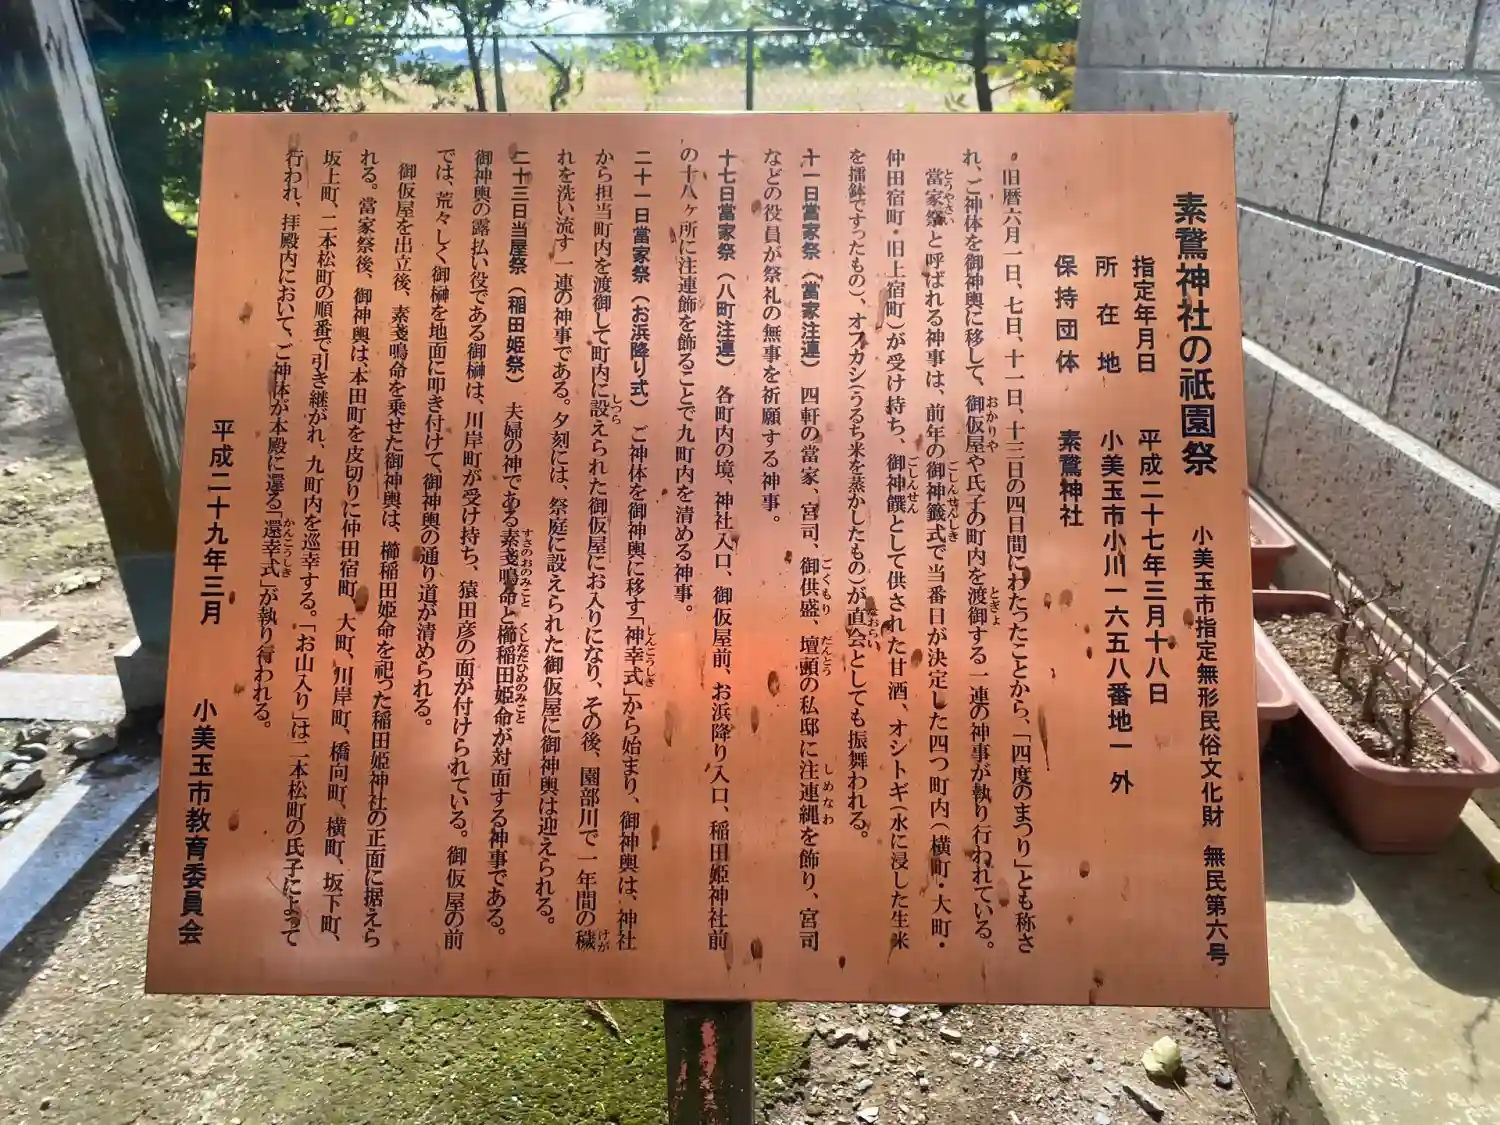 素鵞神社の祇園祭　小美玉市指定無形民俗文化財　無民第六号
指定年月日　平成二十七年三月十八日
所在地　小美玉市小川一六五八番地一外
保持団体　素鵞神社
旧暦六月一日、七日、十一日、十三日の四日間にわたったことから、「四度のまつり」とも称さ
れ、ご神体を御神輿に移して、御仮屋や氏子の町内を渡御する一連の神事が執り行われている。
當家祭と呼ばれる神事は、前年の御神籤式で当番日が決定した四つ町内（横町・大町・
仲田宿町・旧上宿町）が受け持ち、御神饌として供された甘酒、オシトギ（水に浸した生米
を擂鉢ですったもの）、オフカシ（うるち米を蒸かしたもの）が直会としても振舞われる。
十一日當家祭（當家注連）　四軒の當家、宮司、御供盛、壇頭の私邸に注連縄を飾り、宮司
などの役員が祭礼の無事を祈願する神事。
十七日當家祭（八町注連）　各町内の境、神社入口、御仮屋前、お浜降り入口、稲田姫神社前
の十八ヶ所に注連飾を飾ることで九町内を清める神事。
二十一日當家祭（お浜降り式）　ご神体を御神輿に移す「神幸式」から始まり、御神輿は、神社
から担当町内を渡御して町内に設えられた御仮屋にお入りになり、その後、園部川で一年間の穢
れを洗い流す一連の神事である。夕刻には、祭庭に設えられた御仮屋に御神輿は迎えられる。
二十三日当屋祭（稲田姫祭）　夫婦の神である素戔嗚命と櫛稲田姫命が対面する神事である。
御神輿の露払い役である御榊は、川岸町が受け持ち、猿田彦の面が付けられている。御仮屋の前
では、荒々しく御榊を地面に叩き付けて、御神輿の通り道が清められる。
御仮屋を出立後、素戔嗚命を乗せた御神輿は、櫛稲田姫命を祀った稲田姫神社の正面に据えら
れる。當家祭後、御神輿は、本田町を皮切りに仲田宿町、大町、川岸町、橋向町、横町、坂下町、
坂上町、二本松町の順番で引き継がれ、九町内を巡幸する。「お山入り」は二本松町の氏子によって
行われ、拝殿内において、ご神体が本殿に還る「還幸式」が執り行われる。
平成二十九年三月　小美玉市教育委員会